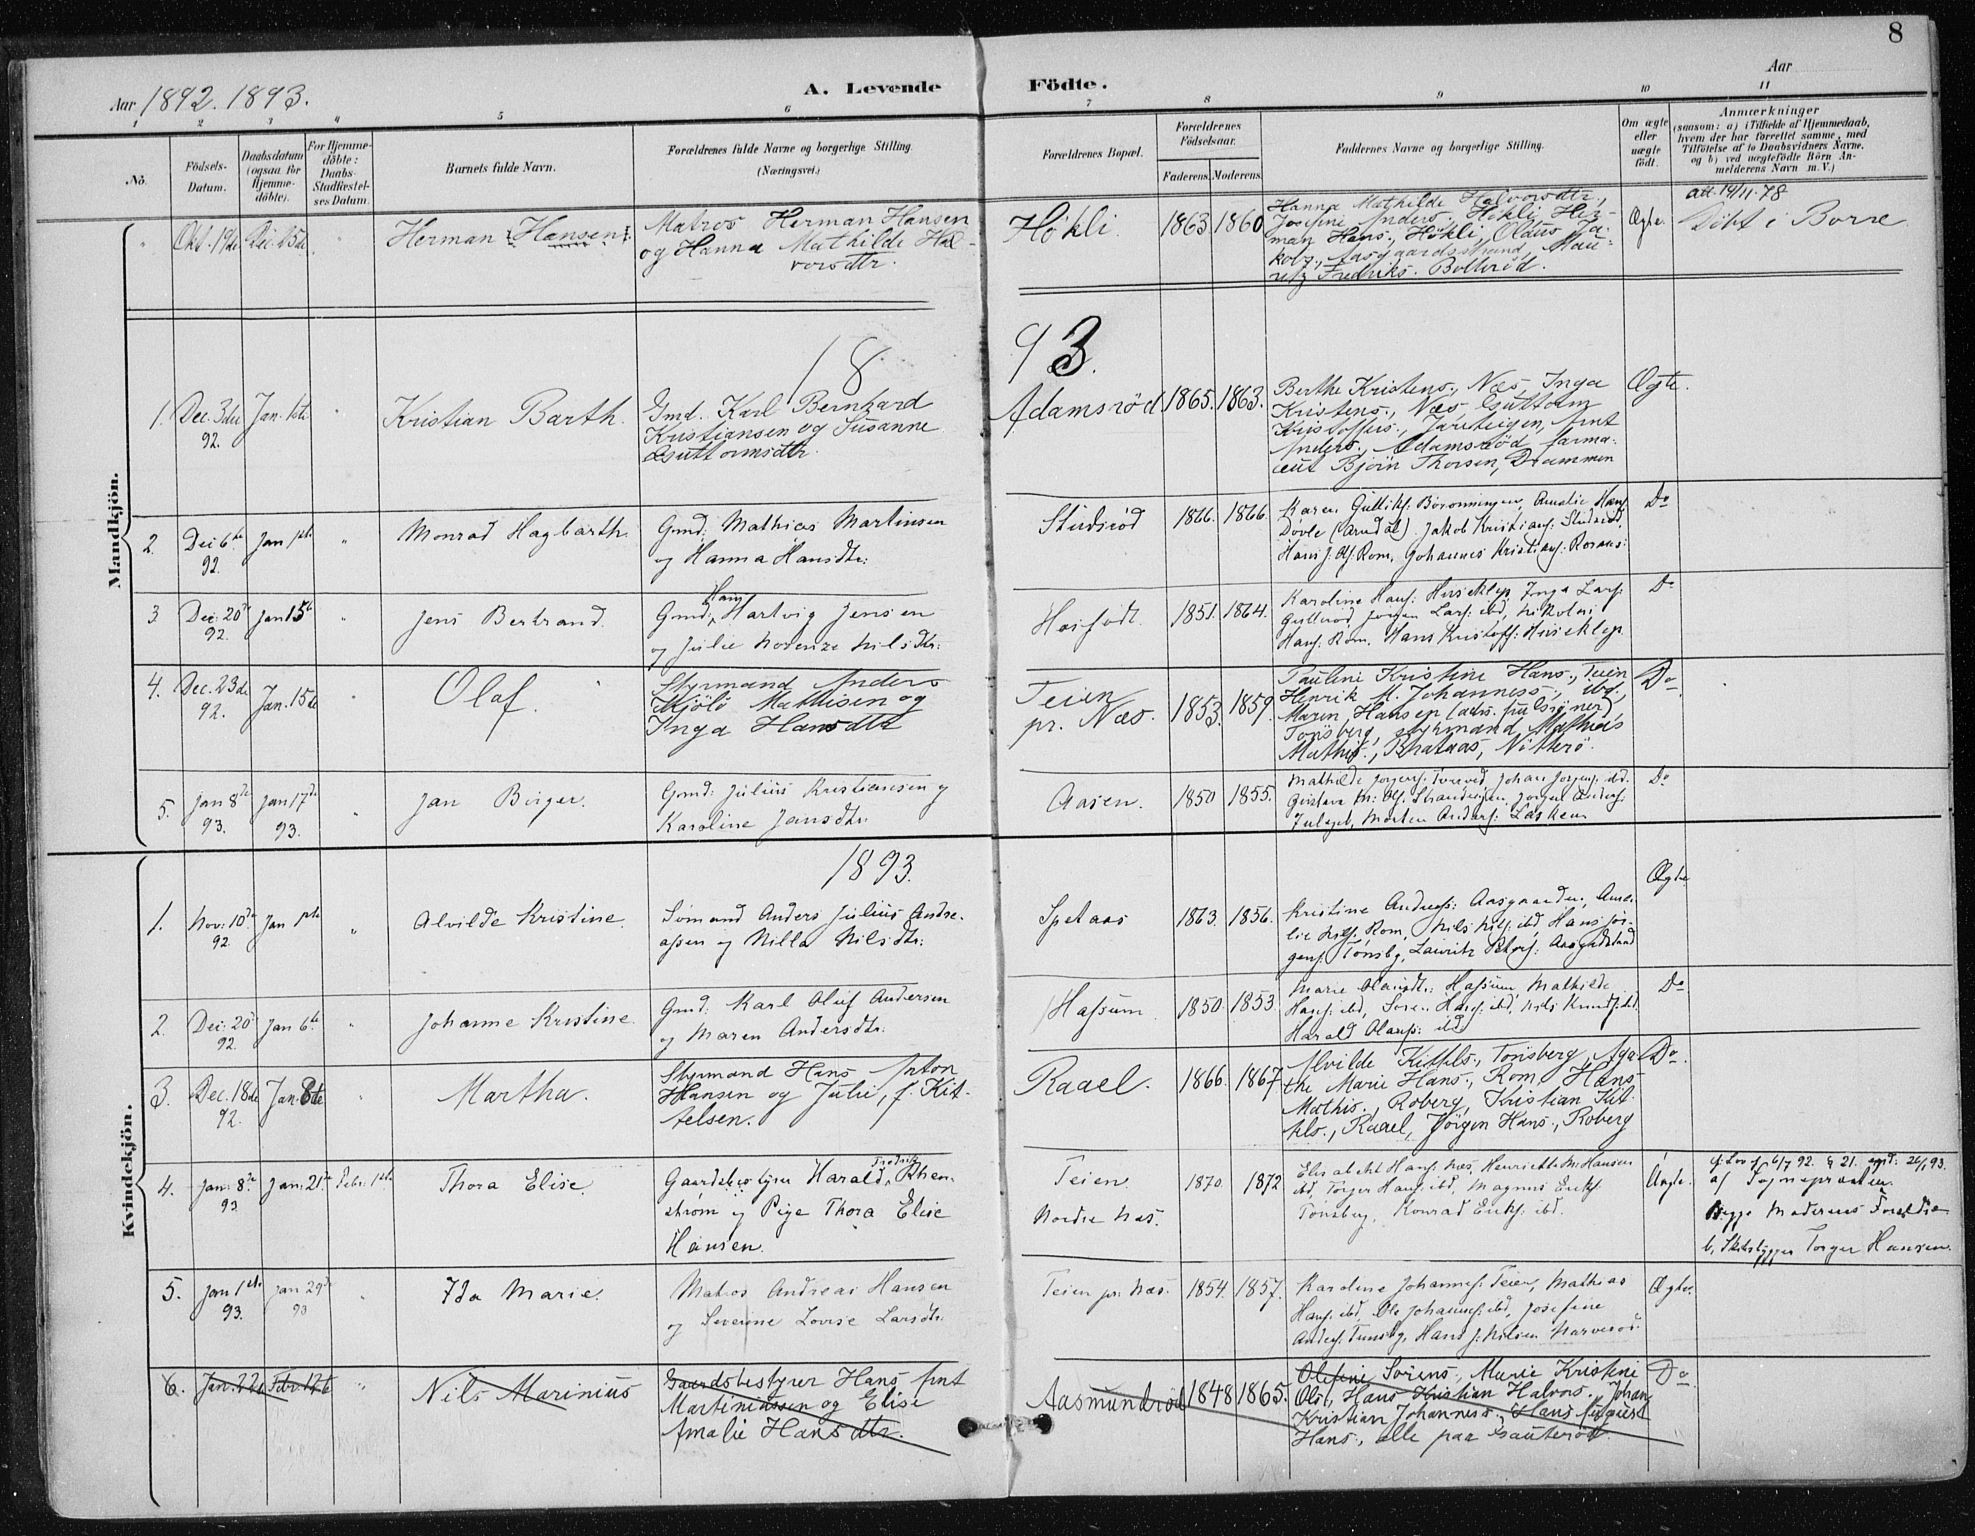 8
Aar 1892. 1893.
A. Levende Födte.
Aar
1 2 3 4 5 6 7 8 9 10 11
No.
Födsels-Datum.
Daabsdatum (ogsaa for Hjemme-döbte).
For Hjemme-döbte: Daabs-Stadfæstel-ses Datum.
Barnets fulde Navn.
Forældrenes fulde Navne og borgerlige Stilling. (Næringsvei.)
Forældrenes Bopæl.
Forældrenes Födselsaar.
Faderens. Moderens.
Faddernes Navne og borgerlige Stilling.
Om ægte eller uægte födt.
Anmærkninger
(saasom: a) i Tilfælde af Hjemmedaab, hvem der har forrettet samme, med Tilföielse af to Daabsvidners Navne, og b) ved uægtefödte Börn An-melderens Navn m. V.)
Mandkjön.
" Okt. 19de Dec. 15de " Herman [Hansen]
Matros Herman Hansen
og Hanna Mathilde Hal-
vorsdtr.
Høkli. 1863. 1860.
Hanna Mathilde Halvorsdtr.,
Josefine Anders., Høkli, Her-
man Hans., Høkli, Olaus Ja-
kobs., Aasgaardsstrand, Mau-
ritz Fredriks. Bollerød.
Ægte.
att. 19/11-78
Döbt i Borre
1893.
1. Dec. 3die 92. Jan. 1ste " Kristian Barth.
Gmd. Karl Bernhard
Kristiansen og Susanne
Guttormsdtr.
Adamsröd 1865. 1863.
Berthe Kristens., Næs, Inga
Kristens., Næs, Guttorm
Kristoffers., Jarteigen, Ant
Anders., Adamsröd, farma-
ceut Björn Thorsen, Drammen
Ægte.
2. Dec 6te 92. Jan 1ste " Monrad Hagbarth.
Gmd: Mathias Martinsen
og Hanna Hansdtr:
Studsröd 1866. 1866.
Døvle (Arndal). Jakob Kristians: Studsröd,
Do
3 Dec. 20de 92. Jan 15de " Jens Bertrand.
Gmd: Hans Hartvig Jensen
og Julie Nils dtr:
1851. 1864.
Karoline Hans: Huseklep, Inga Lars:
Gullerød, Jørgen Lars: ibd, Nikolai
Hans: Rom. Hans Kristoff: Huseklep
Do
4. Dec. 23de 92. Jan. 15de " Olaf.
Styrmand Anders
Mathisen og
Inga Hansdtr
Teien pr. Næs. 1853. 1859.
Pauline Kristine Hans., Teien
Henrik M. Johanness., ibd.,
Maren Hansen
Tönsberg, styrmand Mathias
Mathis., Nötterö.
Do.
5. Jan 8de 93. Jan 17de 93. " Jan Birger.
Gmd: Julius Kristiansen og
Karoline Jansdtr:
Aasen. 1850 1855.
Mathilde Jørgens: Tverved, Johan Jørgens: ibd.
Gustava M: Ols: Strandveien, Jørgen Anders:
Morten Anders:
Do
Kvindekjön.
1893.
1. Nov: 10de 92. Jan 1ste " Alvilde Kristine.
Sømand Anders Julius Andre-
assen og Nilla Nilsdtr:
Spetaas 1863. 1856.
Kristine Andreas: Aasgaarden, Ama-
lie Nils: Rom, Nils Nils: ibd, Hans Jør-
gens: Tønsbg, Lauritz Peters: Aasgdstrand
Ægte
2. Dec: 20de 92. Jan 6te " Johanne Kristine.
Gmd: Karl Oluf Andersen
og Maren Andersdtr:
Hassum 1850. 1853.
Marie Olausdtr: Hassum, Mathilde
Hans: ibd, Søren Hans: ibd, Nils Knuds: ibd
Harald Olaus: ibd
Do
3. Dec. 18de 92. Jan. 8de " Martha.
Styrmand Hans Anton
Hansen og Julie, f. Kit-
telsen.
Raael. 1866. 1867
Alvilde Kittels., Tönsberg, Aga-
the Marie Hans., Rom, Hans
Mathis., Roberg, Kristian Kit-
tels., Raael, Jörgen Hans., Roberg
Do.
4. Jan: 8de 93 Jan: 21de Febr: 1ste Thora Elise.
Gaardsbestyrer Harald Fredrik Rhen-
strøm og Pige Thora Elise
Hansen.
Teien Nordre Næs. 1870. 1872
Elisabeth Hans: Næs, Henriette M: Hansen
ibd, Torger Hans: ibd, Magnus Eriks:
Tønsberg, Konrad Eriks: ibd.
Uægte.
cf. Lov af 6/7 92. § 21. 26/1 93.
af Sognepræsten.
Begge Moderens Forældre
b, Skibsbygger Torger Hansen.
5. Jan 1ste 93. Jan 29de 93 " Ida Marie.
Matros Andreas Hansen
og Severine Lovise Larsdtr:
Teien pr. Næs. 1854. 1857.
Karoline Johannes: Teien, Mathias
Hans: ibd, Ole Johannes: ibd, Josefine
Anders: Tunsbg, Hans J: Nilsen Narverød.
Ægte.
6. Jan. 22de Febr. 12te " Nils Marinius
Gaardsbestyrer Hans Ant
Martiniussen og Elise
Amalie Hansdtr.
Aasmundröd 1848 1865.
Olefine Sörens., Marie Kristine
Ols., Hans Kristian Halvors., Johan
Kristian Johanness., Hans August
Hans., alle paa Gauteröd.
Do